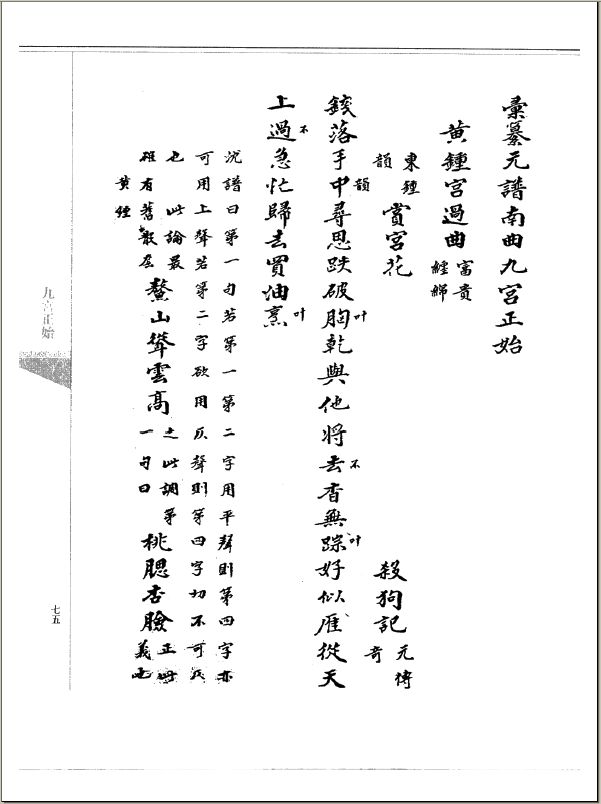 彙纂元譜南曲九宮正始
黃鍾宮過曲 富貴纏綿
東鍾韻 賞宮花 殺狗記 元傳奇
錢落手中韻尋思跌破胸叶乾與他將去不杳無踪叶好似雁從天
上過不急忙歸去買油烹叶
沈譜曰第一句若第一第二字用平聲則第四字亦
可用上聲若第二字欲用仄聲則第四字切不可仄
也此論最雖有舊散套黃鍾 鰲山聳雲高 之此調第一句曰 桃腮杏臉 正此義也
九宮正始
七五